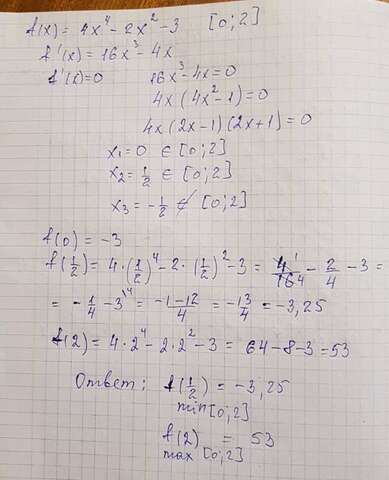 f(x) = 4x⁴ - 2x² - 3 [0;2]
f'(x) = 16x³ - 4x
f'(x)=0 16x³ - 4x = 0
4x (4x² - 1) = 0
4x (2x-1) (2x+1) = 0
x₁ = 0 ∈ [0;2]
x₂ = 1/2 ∈ [0;2]
x₃ = - 1/2 ∉ [0;2]
f(0) = -3
f(1/2) = 4·(1/2)⁴ - 2·(1/2)² - 3 = 4/16 - 2/4 - 3 =
= - 1/4 - 3 = (-1-12)/4 = -13/4 = -3,25
f(2) = 4·2⁴ - 2·2² - 3 = 64 - 8 - 3 = 53
Ответ: f(1/2) = -3,25
min [0;2]
f(2) = 53
max [0;2]